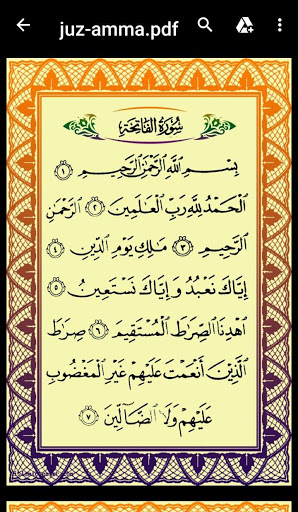 juz-amma.pdf
سُورَةُ الفَاتِحَةِ
بِسْمِ اللَّهِ الرَّحْمَٰنِ الرَّحِيمِ ۝١
الْحَمْدُ لِلَّهِ رَبِّ الْعَالَمِينَ ۝٢ الرَّحْمَٰنِ
الرَّحِيمِ ۝٣ مَالِكِ يَوْمِ الدِّينِ ۝٤
إِيَّاكَ نَعْبُدُ وَإِيَّاكَ نَسْتَعِينُ ۝٥
اهْدِنَا الصِّرَاطَ الْمُسْتَقِيمَ ۝٦ صِرَاطَ
الَّذِينَ أَنْعَمْتَ عَلَيْهِمْ غَيْرِ الْمَغْضُوبِ
عَلَيْهِمْ وَلَا الضَّالِّينَ ۝٧